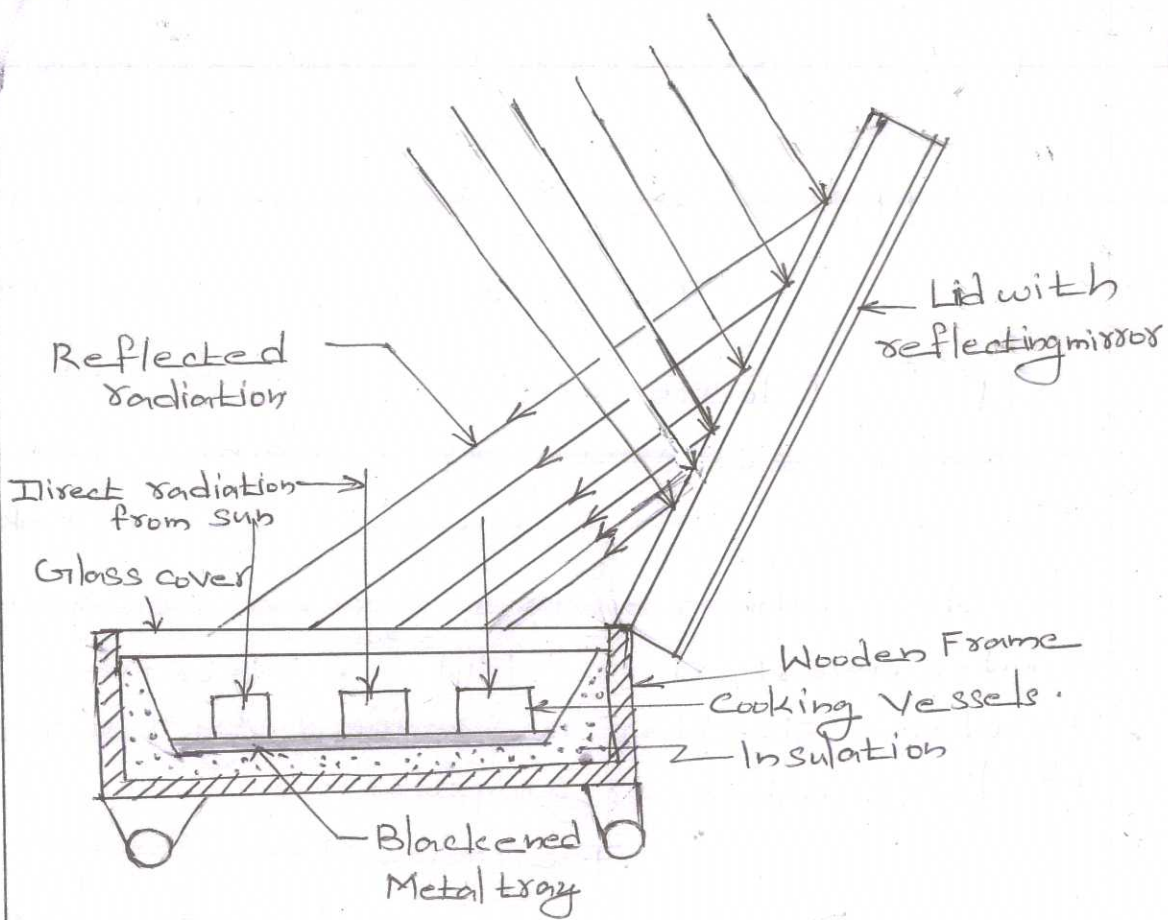 Lid with
reflecting mirror
Reflected
radiation
Direct radiation
from sun
Glass cover
Wooden Frame
Cooking Vessels.
Insulation
Blackened
Metal tray